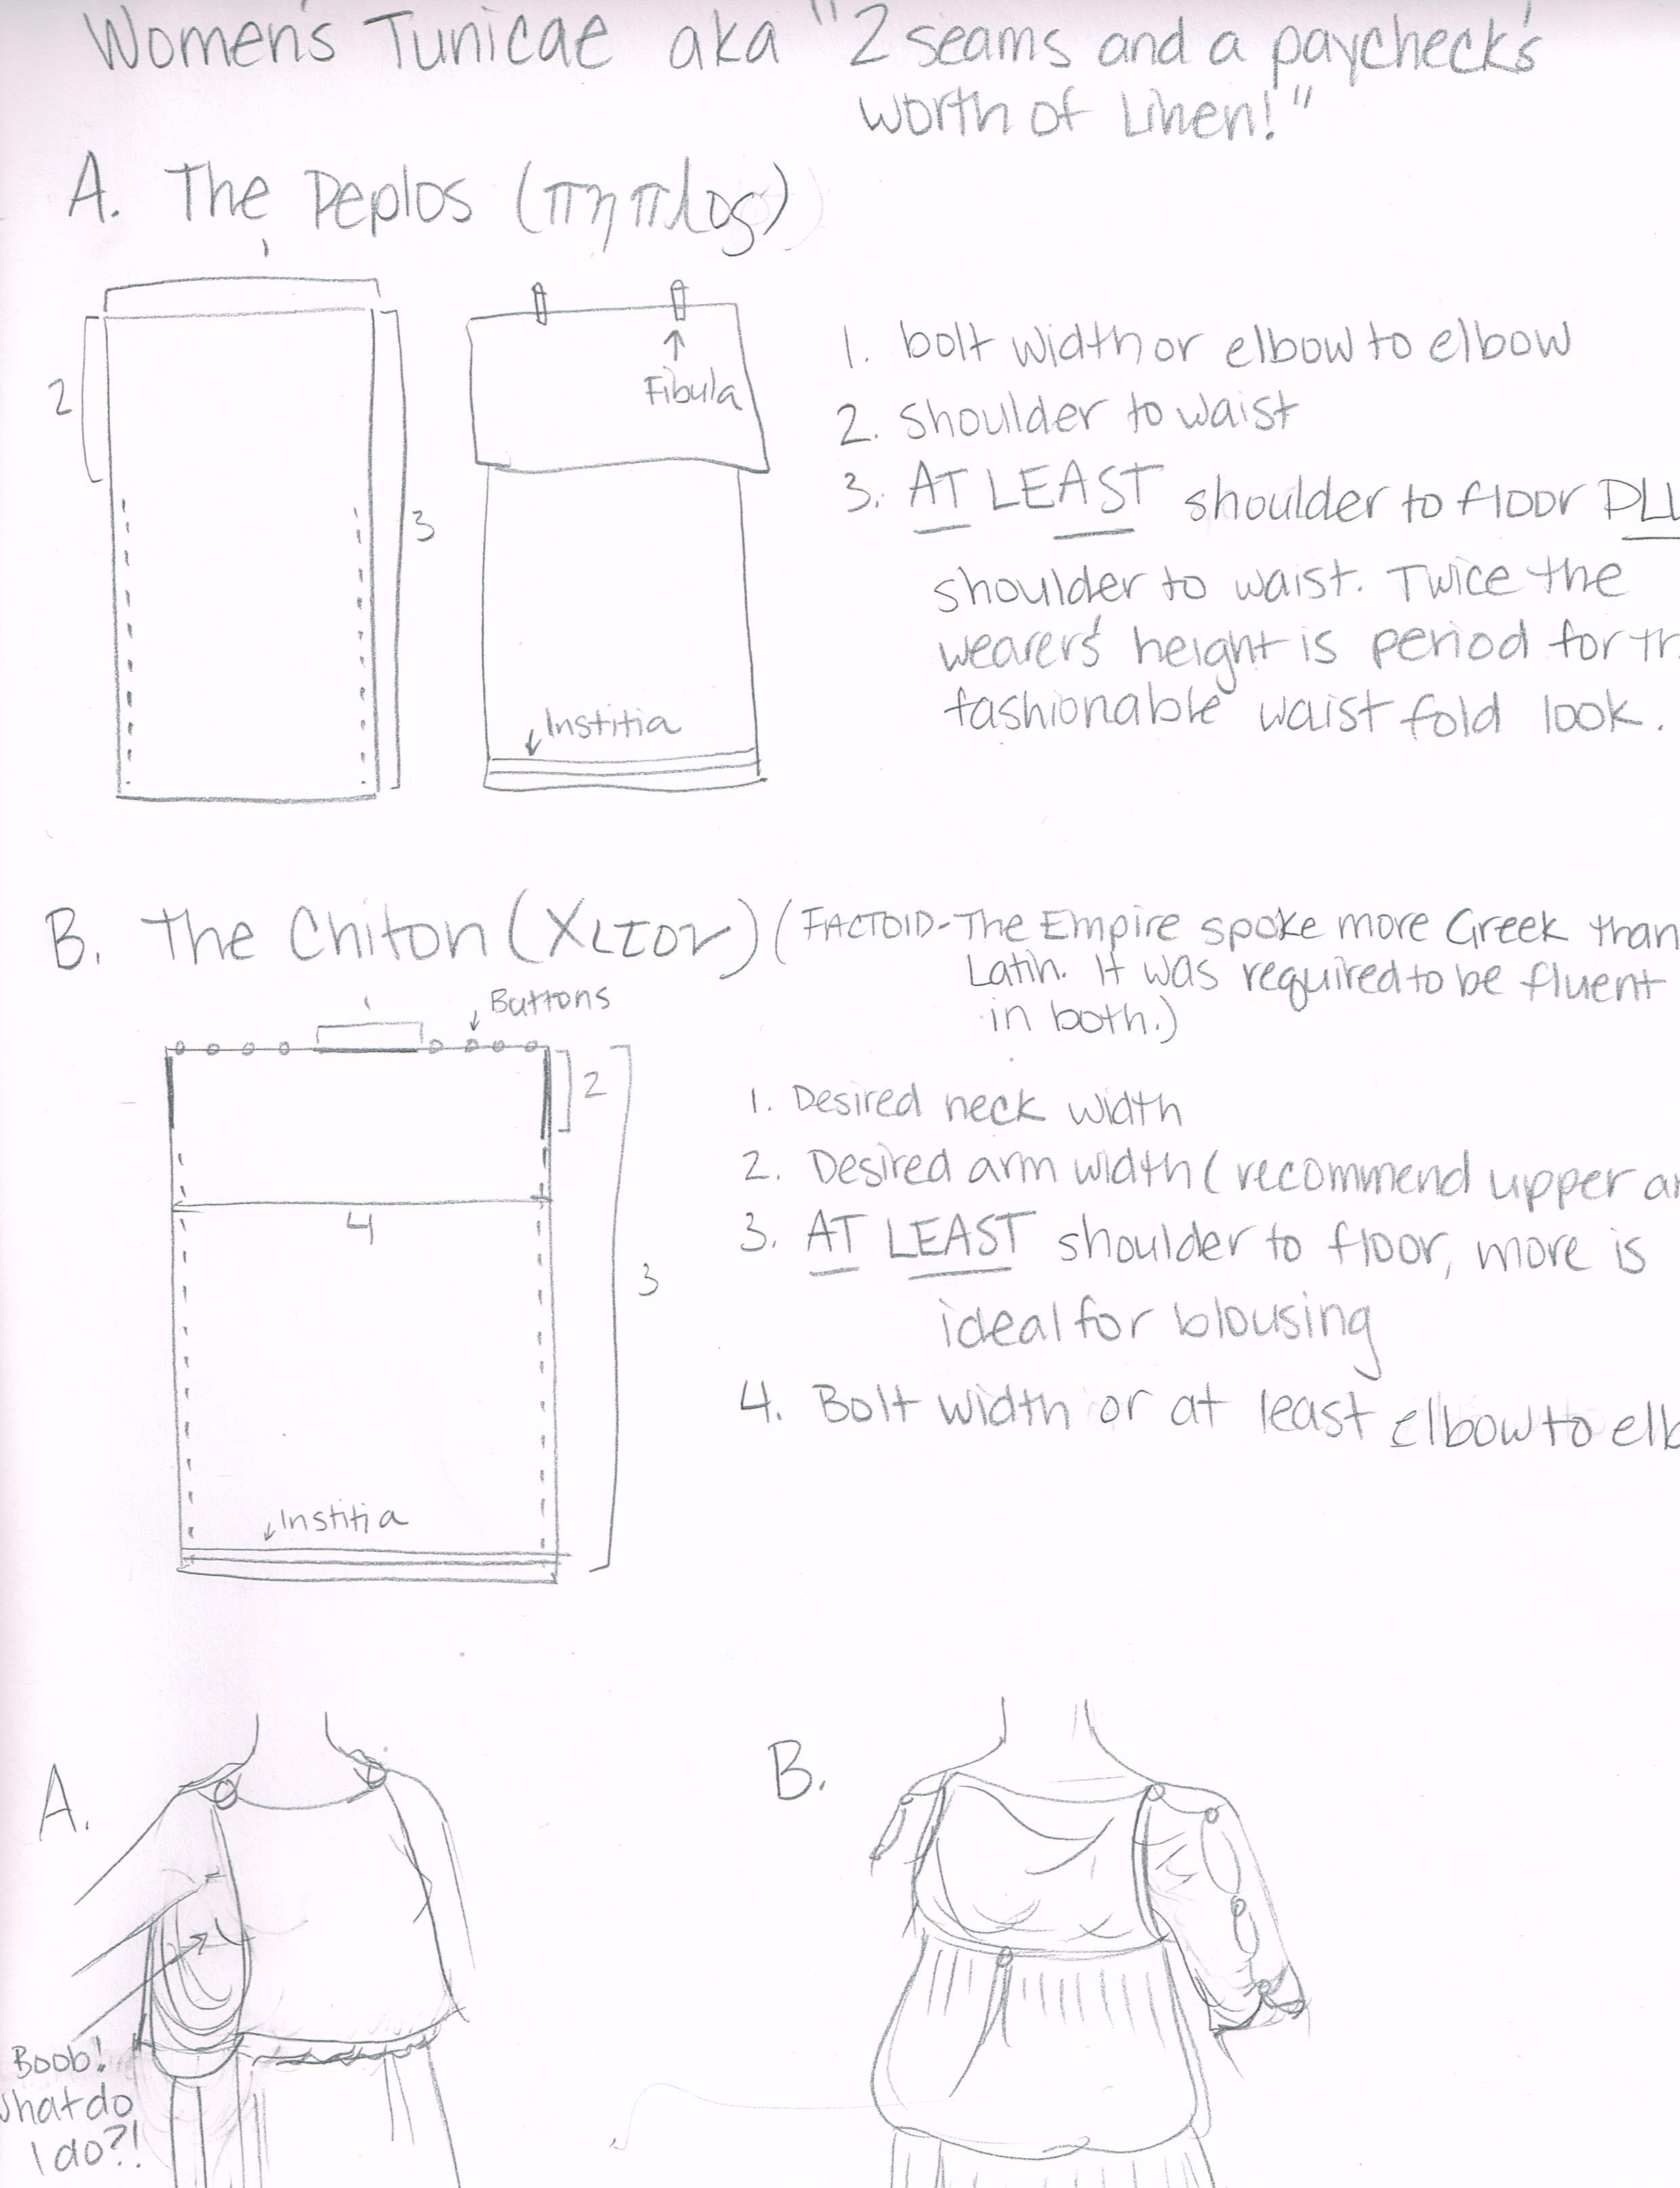 Women's Tunicae aka "2 seams and a paycheck's
worth of Linen!"
A. The Peplos (πηπλος)
1
2
3
Fibula
Institia
1. bolt width or elbow to elbow
2. shoulder to waist
3. AT LEAST shoulder to floor PLU
shoulder to waist. Twice the
wearer's height is period for th
fashionable waist fold look.
B. The Chiton (Χιτον) (FACTOID-The Empire spoke more Greek than
Latin. It was required to be fluent
in both.)
1
Buttons
2
4
3
Institia
1. Desired neck width
2. Desired arm width (recommend upper ar
3. AT LEAST shoulder to floor, more is
ideal for blousing
4. Bolt width or at least elbow to elb
A.
B.
Boob!
What do
I do?!